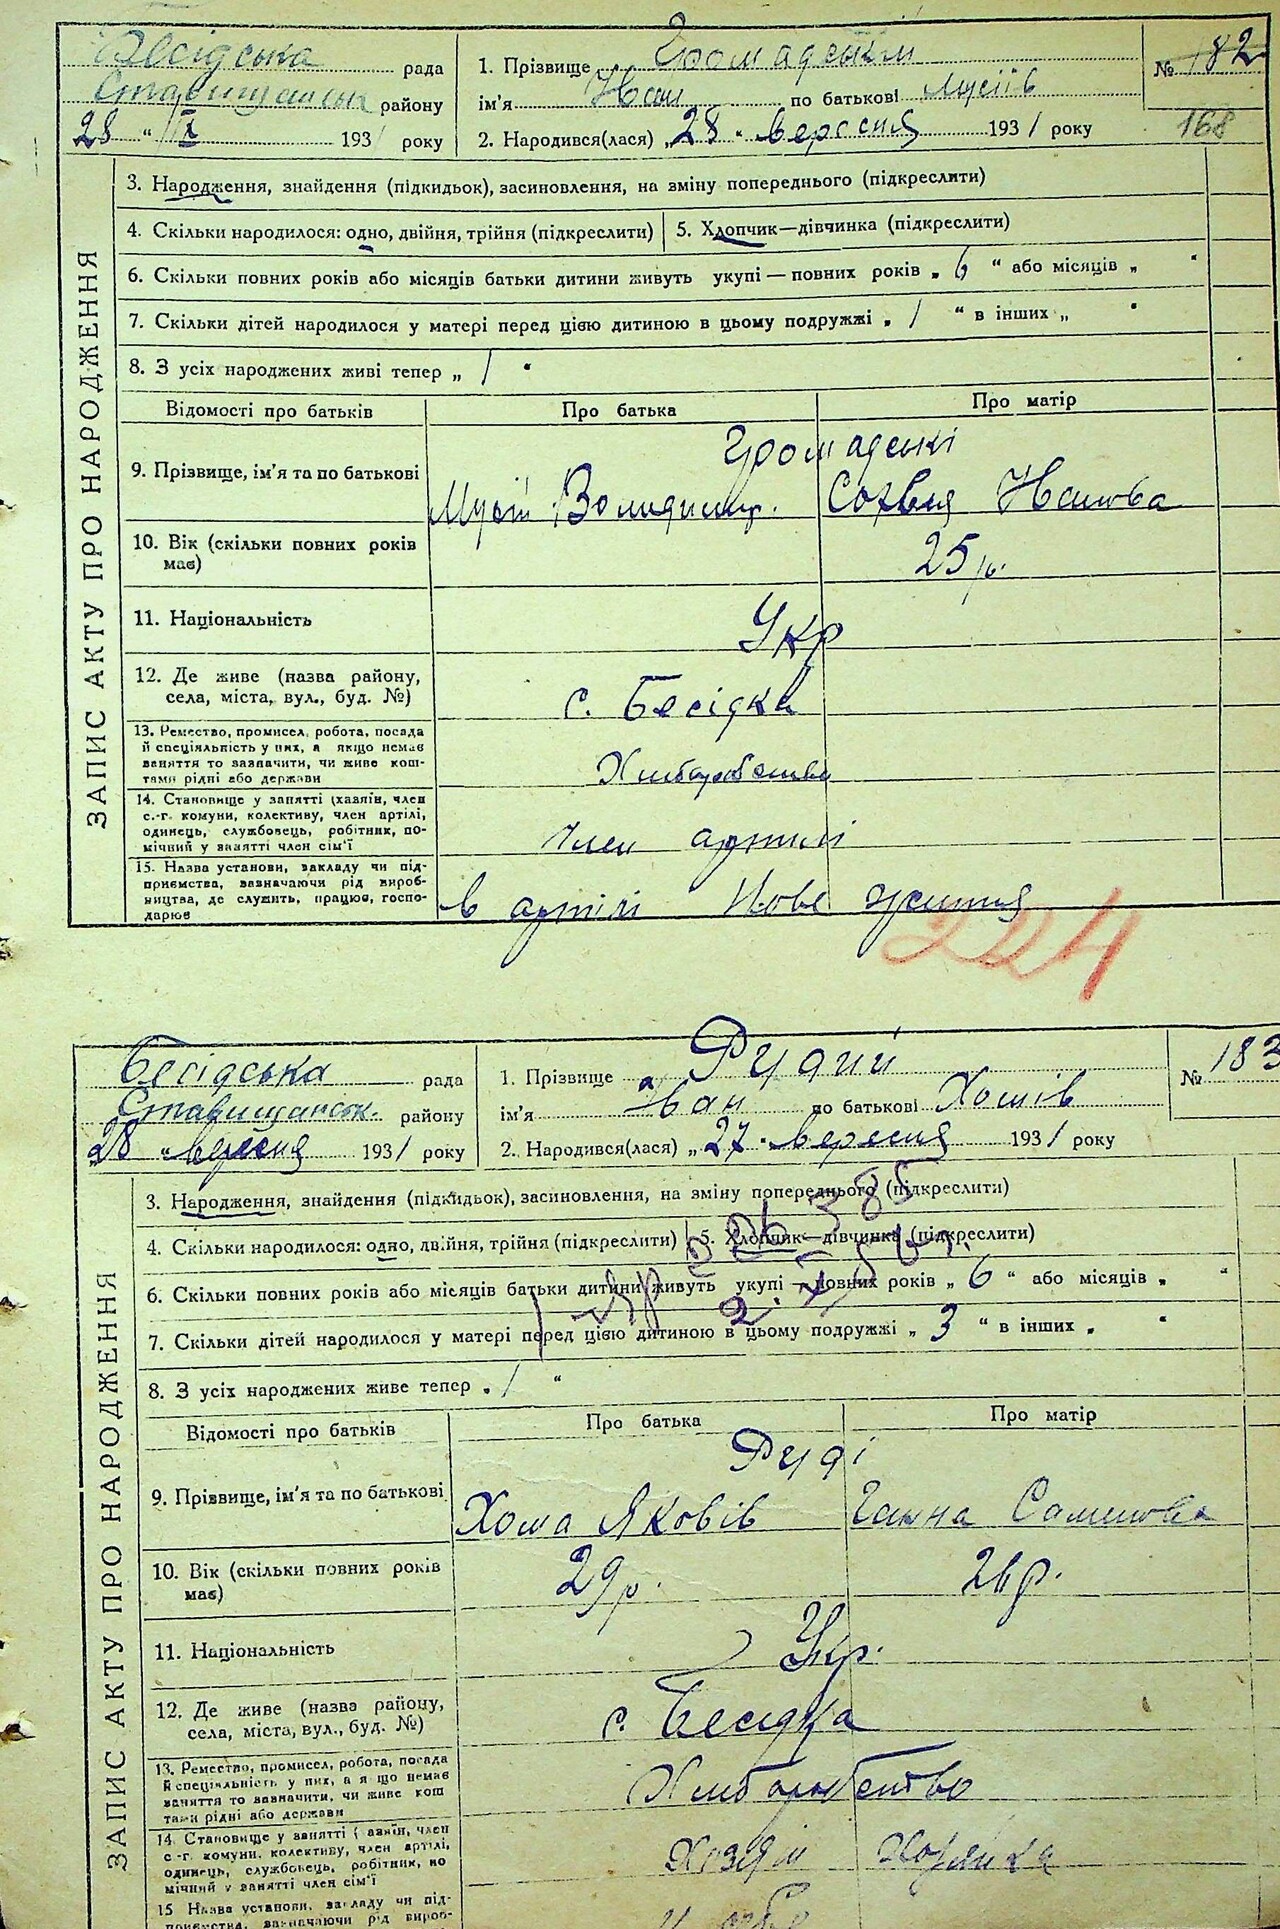 Бесідська рада
Ставищанськ району
28 „ IX 1931 року
1. Прізвище Громадський
ім'я Іван по батькові Мусіїв
2. Народився(лася) „28" вересня 1931 року
№ 182
168
ЗАПИС АКТУ ПРО НАРОДЖЕННЯ
3. Народження, знайдення (підкидьок), засиновлення, на зміну попереднього (підкреслити)
4. Скільки народилося: одно, двійня, трійня (підкреслити) 5. Хлопчик—дівчинка (підкреслити)
6. Скільки повних років або місяців батьки дитини живуть укупі — повних років „ 6 " або місяців „ "
7. Скільки дітей народилося у матері перед цією дитиною в цьому подружжі „ 1 " в інших „ "
8. З усіх народжених живі тепер „ 1 "
Відомості про батьків Про батька Про матір
Громадські
9. Прізвище, ім'я та по батькові Мусій Володимир. Софія Іванова
10. Вік (скільки повних років 25 р.
має)
11. Національність Укр
12. Де живе (назва району,
села, міста, вул., буд. №) с. Бесідка
13. Ремество, промисел, робота, посада
й спеціяльність у них, а якщо немає
заняття то зазначити, чи живе кош-
тами рідні або держави
Хліборобство
14. Становище у занятті (хазяїн, член
с.-г. комуни, колективу, член артілі,
одинець, службовець, робітник, по-
мічний у занятті член сім'ї
член артілі
15. Назва установи, закладу чи під-
приємства, зазначаючи рід вироб-
ництва, де служить, працює, госпо-
дарює
в артілі Нове життя
224
Бесідська рада
Ставищанськ. району
„28 " вересня 1931 року
1. Прізвище Рудий
ім'я Іван по батькові Хомів
2. Народився(лася) „27" вересня 1931 року
№ 183
ЗАПИС АКТУ ПРО НАРОДЖЕННЯ
3. Народження, знайдення (підкидьок), засиновлення, на зміну попереднього (підкреслити)
4. Скільки народилося: одно, двійня, трійня (підкреслити) 5. Хлопчик—дівчинка (підкреслити)
6. Скільки повних років або місяців батьки дитини живуть укупі — повних років „ 6 " або місяців „ "
7. Скільки дітей народилося у матері перед цією дитиною в цьому подружжі „ 3 " в інших „ "
8. З усіх народжених живе тепер „ 1 "
Відомості про батьків Про батька Про матір
Руді
9. Прізвище, ім'я та по батькові Хома Яковів Ганна Самилова
10. Вік (скільки повних років 29 р. 26 р.
має)
11. Національність Укр.
12. Де живе (назва району,
села, міста, вул., буд. №) с. Бесидка
13. Ремество, промисел, робота, посада
й спеціяльність у них, а я що немає
заняття то зазначити, чи живе кош
тами рідні або держави
Хліборобство
14. Становище у занятті ( азяїн, член
с.-г. комуни, колективу, член артілі,
одинець, службовець, робітник, по
мічний у занятті член сім'ї
Хозяїн Хозяйка
15 Назва установи, закладу чи під-
приємства, зазначаючи рід вироб-